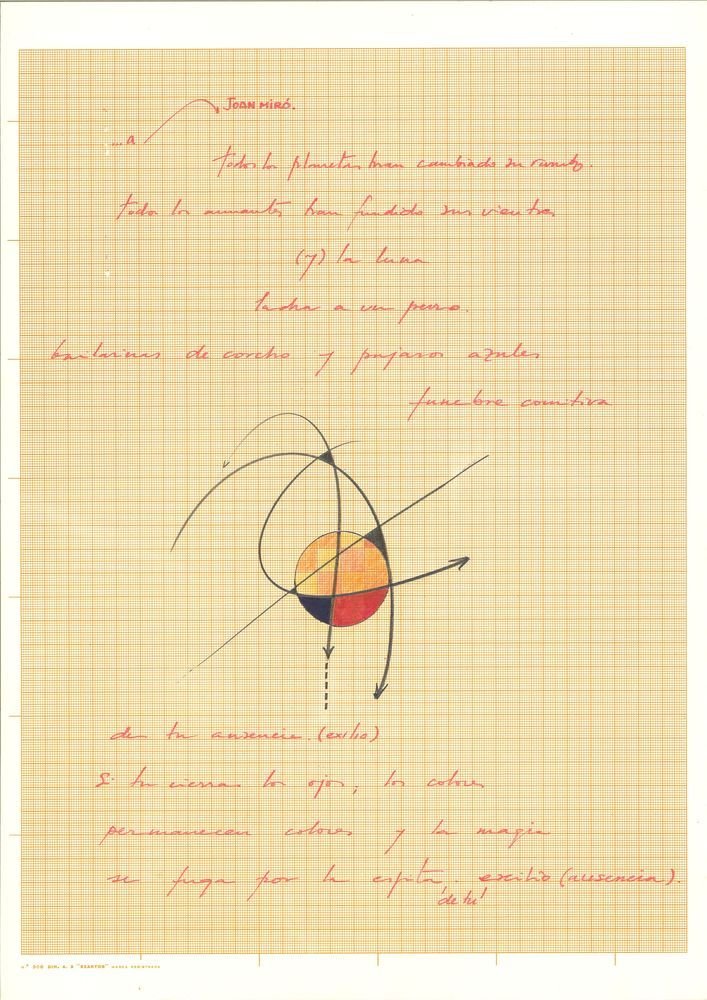 ...a JOAN MIRÓ.
todos los planetas han cambiado su rumbo.
todos los amantes han fundido sus vientres
(y) la luna
ladra a un perro.
bailarinas de corcho y pajaros azules
funebre comitiva
de tu ausencia. (exilio)
Si tu cierras los ojos, los colores
permanecen colores y la magia
se fuga por la espita. exilio (ausencia).
'de tu'
N.º DOS DIN. A. 3 "REAKTOR" MARCA REGISTRADA